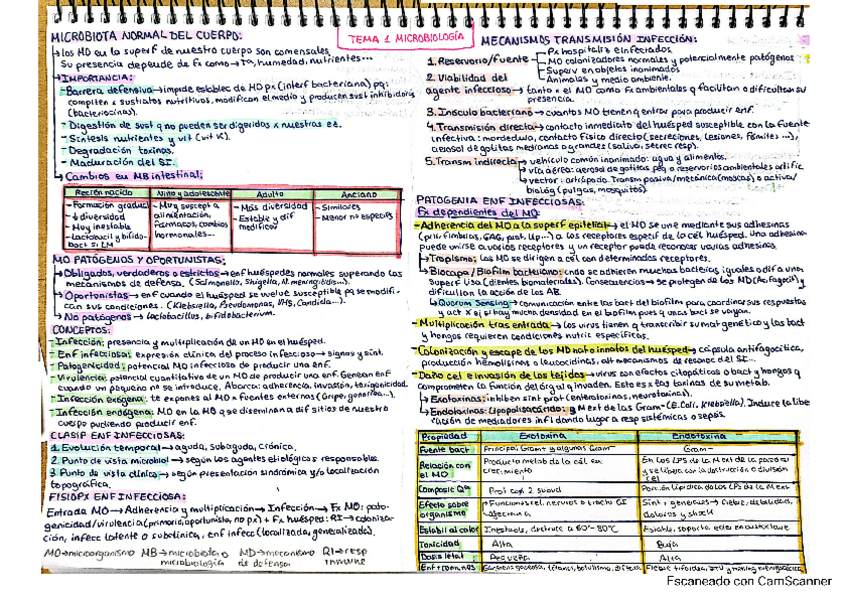 TEMA 1 MICROBIOLOGÍA
MICROBIOTA NORMAL DEL CUERPO:
↳ los MO en la superf de nuestro cuerpo son comensales.
Su presencia depende de Fx como → Tª, humedad, nutrientes...
↳ IMPORTANCIA:
- Barrera defensiva → impide establec de MO px (interf bacteriana) pq:
compiten x sustratos nutritivos, modifican el medio y producen sust inhibidoras
(bacteriocinas).
- Digestión de sust q no pueden ser digeridas x nuestras
- Síntesis nutrientes y vit (vit K).
- Degradación toxinas.
- Maduración del SI.
↳ Cambios en MB intestinal:
Recién nacido
- Formación gradual
- ↓ diversidad
- Muy inestable
- Lactobacil y bifido-
bact si LM
Niño y adolescente
- Muy suscept a
alimentación,
fármacos, cambios
hormonales...
Adulto
- Más diversidad
- Estable y dif
modificar
Anciano
- Similares
- Menor nº especies
MO PATÓGENOS Y OPORTUNISTAS:
↳ Obligados, verdaderos o estrictos → enf huéspedes normales superando los
mecanismos de defensa. (Salmonella, Shigella, N.meningitidis...).
↳ Oportunistas → enf cuando el huésped se vuelve susceptible pq se modifi-
can sus condiciones. (Klebsiella, Pseudomonas, VHS, Candida...).
↳ No patógenos → Lactobacillus, bifidobacterium.
CONCEPTOS:
- Infección: presencia y multiplicación de un MO en el huésped.
- Enf infecciosa: expresión clínica del proceso infeccioso → signos y sínt.
- Patogenicidad: potencial MO infecciosos de producir una enf.
- Virulencia: potencial cuantitativo de un MO de producir una enf. Generan enf
cuando un pequeño nº se introduce. Abarca: adherencia, invasión, toxigenicidad.
- Infección exógena: te expones al MO x fuentes externas (Gripe, gonorrea...).
- Infección endógena: MO en la MO que se diseminan a dif sitios de nuestro
cuerpo pudiendo producir enf.
CLASIF ENF INFECCIOSAS:
1. Evolución temporal → aguda, subaguda, crónica.
2. Punto de vista microbiol → según los agentes etiológicos responsables.
3. Punto de vista clínico → según presentación sindrómica y/o localización
topográfica.
FISIOPX ENF INFECCIOSA:
Entrada MO → Adherencia y multiplicación → Infección → Fx MO: pato-
genicidad/virulencia (primario, oportunista, no px) + Fx huésped: RI → coloniza-
ción, infecc latente o subclínica, enf infecc (localizada, generalizada).
MO → microorganismo MB → microbiota o MD → mecanismo RI → resp
microbiología de defensa inmune
MECANISMOS TRANSMISIÓN INFECCIÓN:
1. Reservorio/fuente
Px hospitaliz e infectados
MO colonizadores normales y potencialmente patógenos
Superv en objetos inanimados
Animales y medio ambiente.
2. Viabilidad del
agente infeccioso → tanto x el MO como Fx ambientales q facilitan o dificultan su
presencia.
3. Inóculo bacteriano → cuantos MO tienen q entrar para producir enf.
4. Transmisión directa → contacto inmediato del huésped susceptible con la fuente
infectiva: mordedura, contacto físico directo (secreciones, lesiones, fómites...),
aerosol de gotitas medianas o grandes (saliva, secrec resp).
5. Transm indirecta → vehículo común inanimado: agua y alimentos.
↳ vía aérea: aerosol de gotitas peq o reservorios ambientales artific
↳ vector: artrópodo. Transm pasiva/mecánica (moscas) o activa/
biológ (pulgas, mosquitos).
PATOGENIA ENF INFECCIOSAS:
Fx dependientes del MO:
- Adherencia del MO a la superf epitelial → el MO se une mediante sus adhesinas
(pili, fimbrias, GAG, prot, lip...) a los receptores específ de la cél huésped. Una adhesina
puede unirse a varios receptores y un receptor puede reconocer varias adhesinas.
↳ Tropismo: los MO se dirigen a cél con determinados receptores.
↳ Biocapa / Biofilm bacteriano: cndo se adhieren muchas bacterias, iguales o dif a una
superf liva (dientes, biomateriales). Consecuencias → se protegen de los MD (Ac, fagocit) y
dificultan la acción de los AB.
↳ Quorum Sensing → comunicación entre las bact del biofilm para coordinar sus respuestas
y act x ej si hay mucha densidad en el biofilm pues q unas bact se vayan.
- Multiplicación tras entrada → los virus tienen q transcribir su mat genético y las bact
y hongos requieren condiciones nutric específicas.
- Colonización y escape de los MD nato innatos del huésped → cápsula antifagocítica,
producción hemolisinas o leucocidinas, alt mecanismos de reconoc del SI...
- Daño cel e invasión de los tejidos → virus con efectos citopáticos o bact y hongos q
comprometen la función del órg al q invaden. Esto es x las toxinas de su metab.
↳ Exotoxinas: inhiben sínt prot (enterotoxinas, neurotoxinas).
↳ Endotoxinas: Lipopolisacárido: q M ext de las Gram- (E.Coli, Klebsiella). Induce la libe
ración de mediadores infl dando lugar a resp sistémicas o sepsis.
Propiedad Exotoxina Endotoxina
Fuente bact Principal Gram+ y algunas Gram- Gram-
Relación con
el MO
Producto metab de la cél en
crecimiento
En los LPS de la M ext de la pared
y se libera con la destrucción o división
cel
Composic Qª Prot cop 2 subud Porción lipídica de los LPS de la M ext
Efecto sobre
organismo
Funciones cel, nervios o tracto GI
Sínt generales → fiebre, debilidad,
dolores y shock
Estabil al calor Inestable, destruye a 60º-80ºC Estable, soporta
Toxicidad Alta Baja
Dosis letal Pequeña Alta
Enf + comunes Gangrena gaseosa, tétanos, botulismo, difteria Fiebre tifoidea, ITU y mening meningocócica
Escaneado con CamScanner